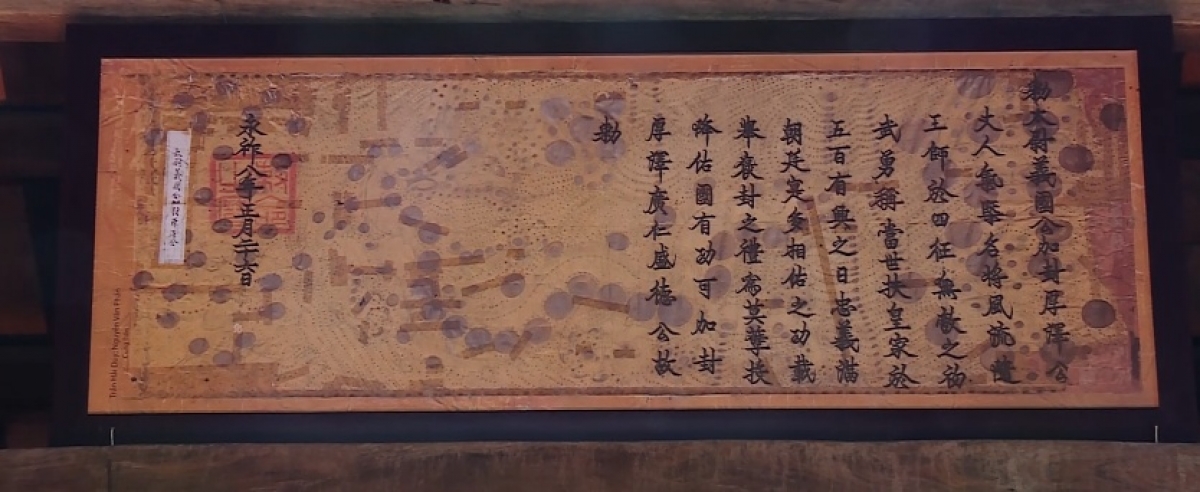 勅太尉義國公加封厚澤公
丈人氣槩名將風流
王師於四征無敵之初
武勇稱當世扶皇家於
五百有興之日忠義滿
朝廷寔多相佑之功載
舉褒封之禮爲
佑國有功可加封
厚澤廣仁盛德公故
勅
永祚八年五月二十六日
Trần Hải Duy, Nguyễn Văn Phán
Cung tiến